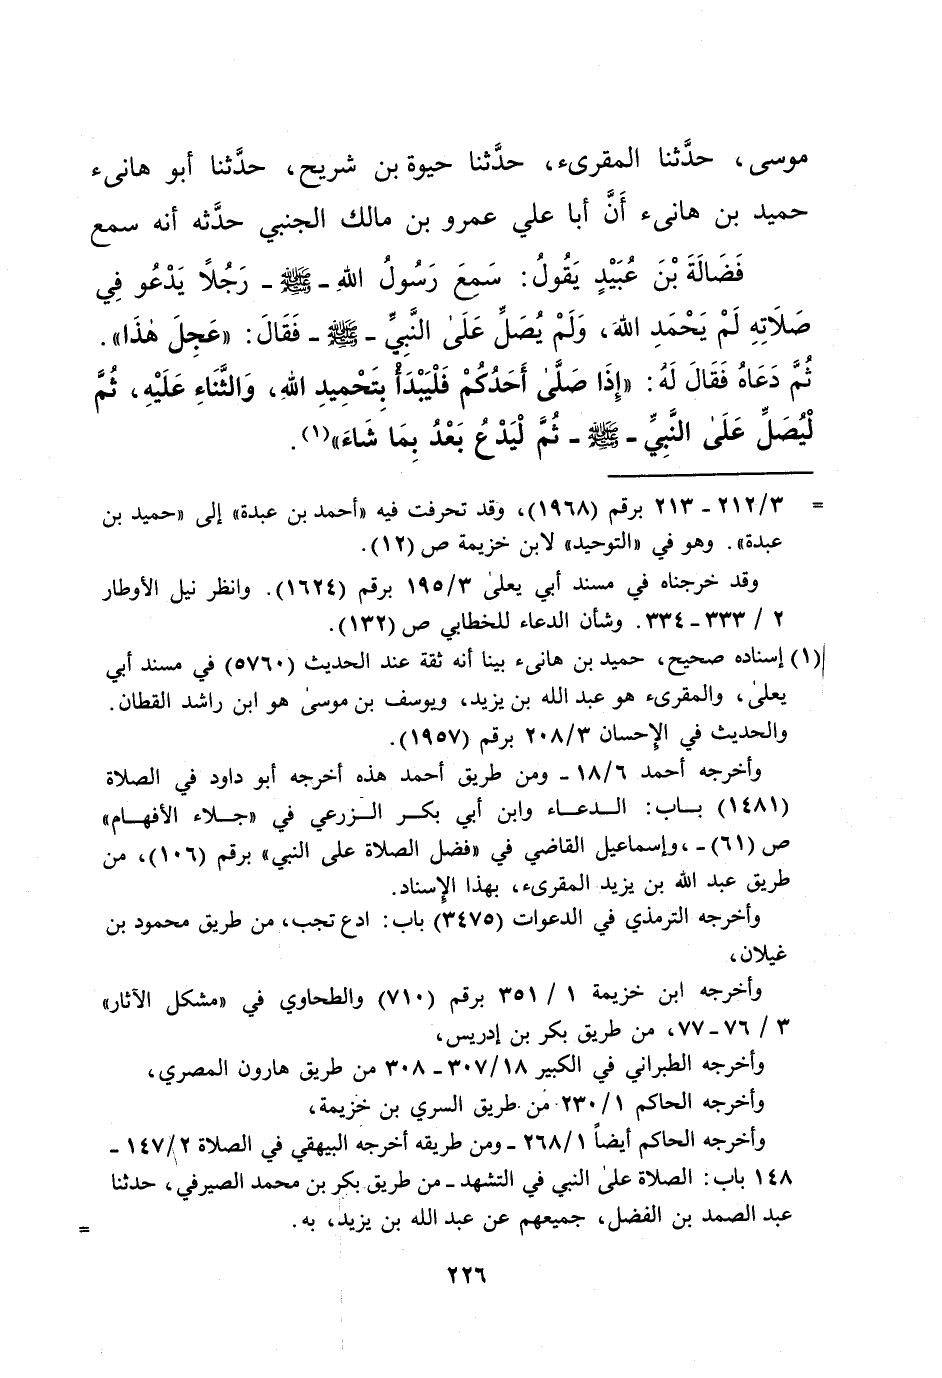 موسى، حدَّثنا المقرىء، حدَّثنا حيوة بن شريح، حدَّثنا أبو هانىء
حميد بن هانىء أَنَّ أبا علي عمرو بن مالك الجنبي حدَّثه أنه سمع
فَضَالَةَ بْنَ عُبَيْدٍ يَقُولُ: سَمِعَ رَسُولُ اللهِ ـ ﷺ ـ رَجُلًا يَدْعُو فِي
صَلَاتِهِ لَمْ يَحْمَدِ اللهَ، وَلَمْ يُصَلِّ عَلَىٰ النَّبِيِّ ـ ﷺ ـ فَقَالَ: «عَجِلَ هٰذَا».
ثُمَّ دَعَاهُ فَقَالَ لَهُ: «إِذَا صَلَّىٰ أَحَدُكُمْ فَلْيَبْدَأْ بِتَحْمِيدِ اللهِ، وَالثَّنَاءِ عَلَيْهِ، ثُمَّ
لْيُصَلِّ عَلَىٰ النَّبِيِّ ـ ﷺ ـ ثُمَّ لْيَدْعُ بَعْدُ بِمَا شَاءَ»(١).
= ٢١٢/٣ ـ ٢١٣ برقم (١٩٦٨)، وقد تحرفت فيه «أحمد بن عبدة» إلى «حميد بن
عبدة». وهو في «التوحيد» لابن خزيمة ص (١٢).
وقد خرجناه في مسند أبي يعلىٰ ١٩٥/٣ برقم (١٦٢٤). وانظر نيل الأوطار
٢ / ٣٣٣ ـ ٣٣٤. وشأن الدعاء للخطابي ص (١٣٢).
(١) إسناده صحيح، حميد بن هانىء بينا أنه ثقة عند الحديث (٥٧٦٠) في مسند أبي
يعلىٰ، والمقرىء هو عبد الله بن يزيد، ويوسف بن موسىٰ هو ابن راشد القطان.
والحديث في الإحسان ٢٠٨/٣ برقم (١٩٥٧).
وأخرجه أحمد ١٨/٦ ـ ومن طريق أحمد هذه أخرجه أبو داود في الصلاة
(١٤٨١) باب: الدعاء وابن أبي بكر الزرعي في «جلاء الأفهام»
ص (٦١) ـ ،وإسماعيل القاضي في «فضل الصلاة على النبي» برقم (١٠٦)، من
طريق عبد الله بن يزيد المقرىء، بهذا الإسناد.
وأخرجه الترمذي في الدعوات (٣٤٧٥) باب: ادع تجب، من طريق محمود بن
غيلان،
وأخرجه ابن خزيمة ١ / ٣٥١ برقم (٧١٠) والطحاوي في «مشكل الآثار»
٣ / ٧٦ ـ ٧٧، من طريق بكر بن إدريس،
وأخرجه الطبراني في الكبير ٣٠٧/١٨ ـ ٣٠٨ من طريق هارون المصري،
وأخرجه الحاكم ٢٣٠/١ من طريق السري بن خزيمة،
وأخرجه الحاكم أيضاً ٢٦٨/١ ـ ومن طريقه أخرجه البيهقي في الصلاة ١٤٧/٢ ـ
١٤٨ باب: الصلاة علىٰ النبي في التشهد ـ من طريق بكر بن محمد الصيرفي، حدثنا
عبد الصمد بن الفضل، جميعهم عن عبد الله بن يزيد، به. =
٢٢٦